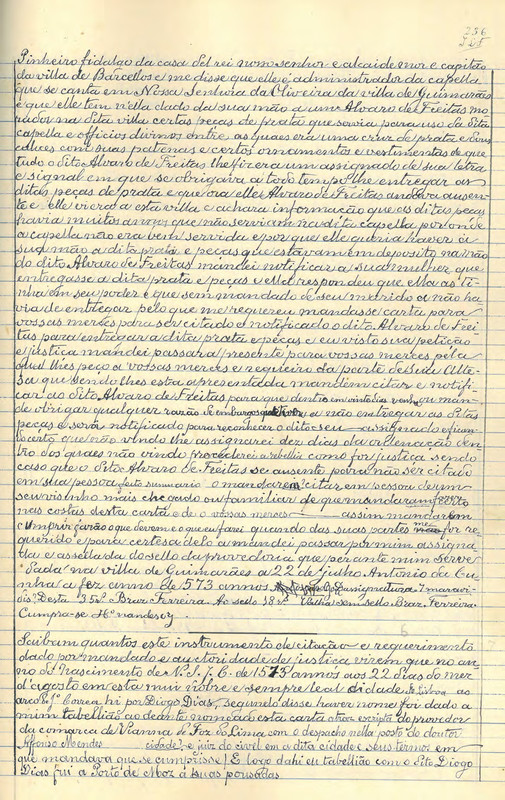 256
Pinheiro fidalgo da casa del rei nosso senhor e alcaide mor e capitão
da villa de Barcellos e me disse que elle é administrador da capella
que se canta em Nossa Senhora da Oliveira da villa de Guimarães
e que elle tem n'ella dado da sua mão a um Alvaro de Freitas mo
rador na dita villa certas peças de prata que servia para uso da dita
capella e officios divinos entre as quaes era uma cruz de prata e dous
calices com suas patenas e certos ornamentos e vestimentas de que
tudo o dito Alvaro de Freitas lhe fizera um assignado de sua letra
e signal em que se obrigava a todo tempo lhe entregar as
ditas peças de prata e que ora elle Alvaro de Freitas andava ausen
te e elle viera a esta villa e achara informação que as ditas peças
havia muitos annos que não serviam na dita capella por onde
a capella não era bem servida e por que elle queria haver á
sua mão a dita prata e peças que estavam em deposito na mão
do dito Alvaro de Freitas mandei notificar a sua mulher que
entregasse a dita prata e peças e ella respondeu que ella as ti
nha em seu poder e que sem mandado de seu marido a não ha
via de entregar pelo que me requereu mandasse carta para
vossas merces para ser citado e notificado o dito Alvaro de Frei
tas para entregar a dita prata e peças e eu visto sua petição
e justiça mandei passar a presente para vossas merces pela
qual lhes peço a vossas merces e requeiro da parte de Sua Alte
sa que sendo lhes esta apresentada mandem citar e notifi
car ao dito Alvaro de Freitas para que dentro em vinte dias venha ou man
de obrigar qualquer razão de embargos que tiver a não entregar as ditas
peças e será notificado para reconhecer o dito seu assignado e fican
do certo que não vindo lhe assignarei dez dias da ordenação den
tro dos quaes não vindo procederei a revelia como for justiça sendo
caso que o dito Alvaro de Freitas se ausente para não ser citado
em sua pessoa feito summario o mandarem citar em pessoa de um
seu visinho mais chegado ou familiar de que mandaram fazer
nas costas desta carta e de o vossas merces assim mandarem
cumprir farão o que devem e o que eu farei quando das suas partes me for re
querido e para certesa delo a mandei passar por mim assigna
da e assellada do sello da provedoria que perante mim serve
Dada na villa de Guimarães a 22 de julho Antonio da Cu
nha a fez anno de 573 annos assignatura 7 maravi
dis. Desta 35 rs Braz Ferreira. Ao sello 18 rs. Valha sem sello Braz Ferreira.
Cumpra-se Hernandes.
Saibam quantos este instrumento de citação e requerimento
dado por mandado e auctoridade de justiça virem que no an
no do Nascimento de N. S. J. C. de 1573 annos aos 22 dias do mez
d'agosto em esta mui nobre e sempre leal cidade de Lisboa ao
arco de Jº Correa hi por Diogo Dias, segundo disse haver nome foi dado a
mim tabellião ao deante nomeado esta carta atraz escripta do provedor
da comarca de Vianna de Foz do Lima com o despacho nella posto do doutor
Affonso Mendes cidade e juiz do civel em a dita cidade e seus termos em
que mandava que se cumprisse! E logo dahi eu tabellião com o dito Diogo
Dias fui a Porto de Moz á suas pousadas